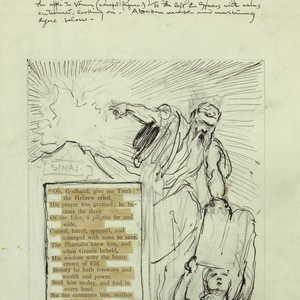 to Venus
To the left the Sp
with arms
looking on. A broken
and
figure below -
SINAI
"Oh, Godhead, give me Truth!"
the Hebrew cried.
His prayer was granted; he be-
came the slave
Of the Idea, a pilgrim far and
wide,
Cursed, hated, spurned, and
scourged with none to save.
The Pharaohs knew him, and
when Greece beheld,
His wisdom wore the hoary
crown of Eld.
Beauty he hath forsworn and
wealth and power.
Seek him to-day, and find in
every land.
No fire consumes him, neither